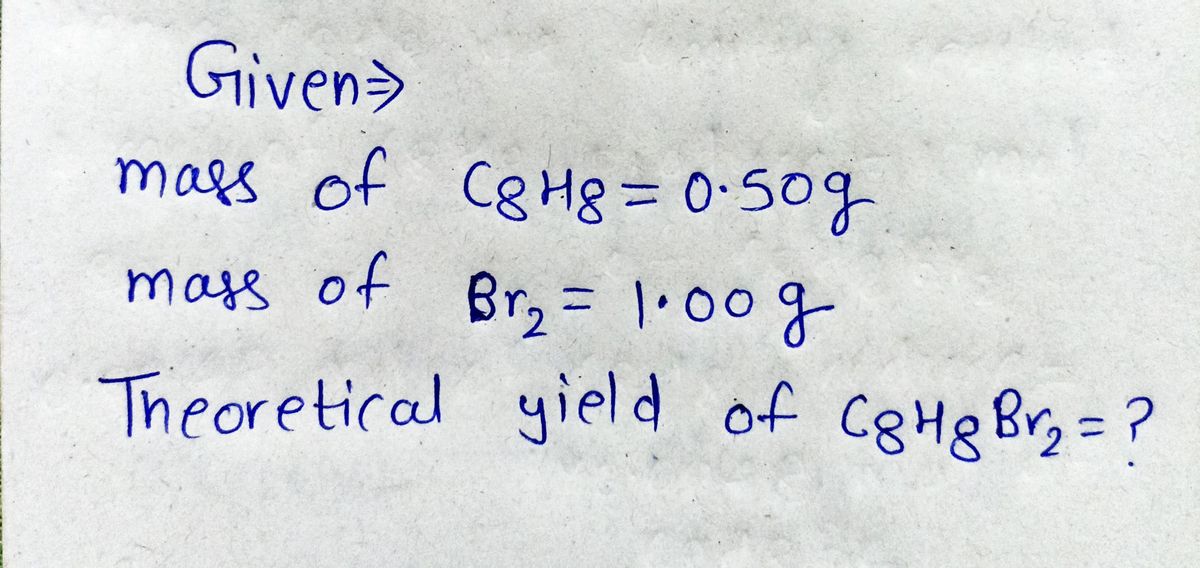 Given⇒
mass of C8H8 = 0.50g
mass of Br2 = 1.00 g
Theoretical yield of C8H8Br2 = ?